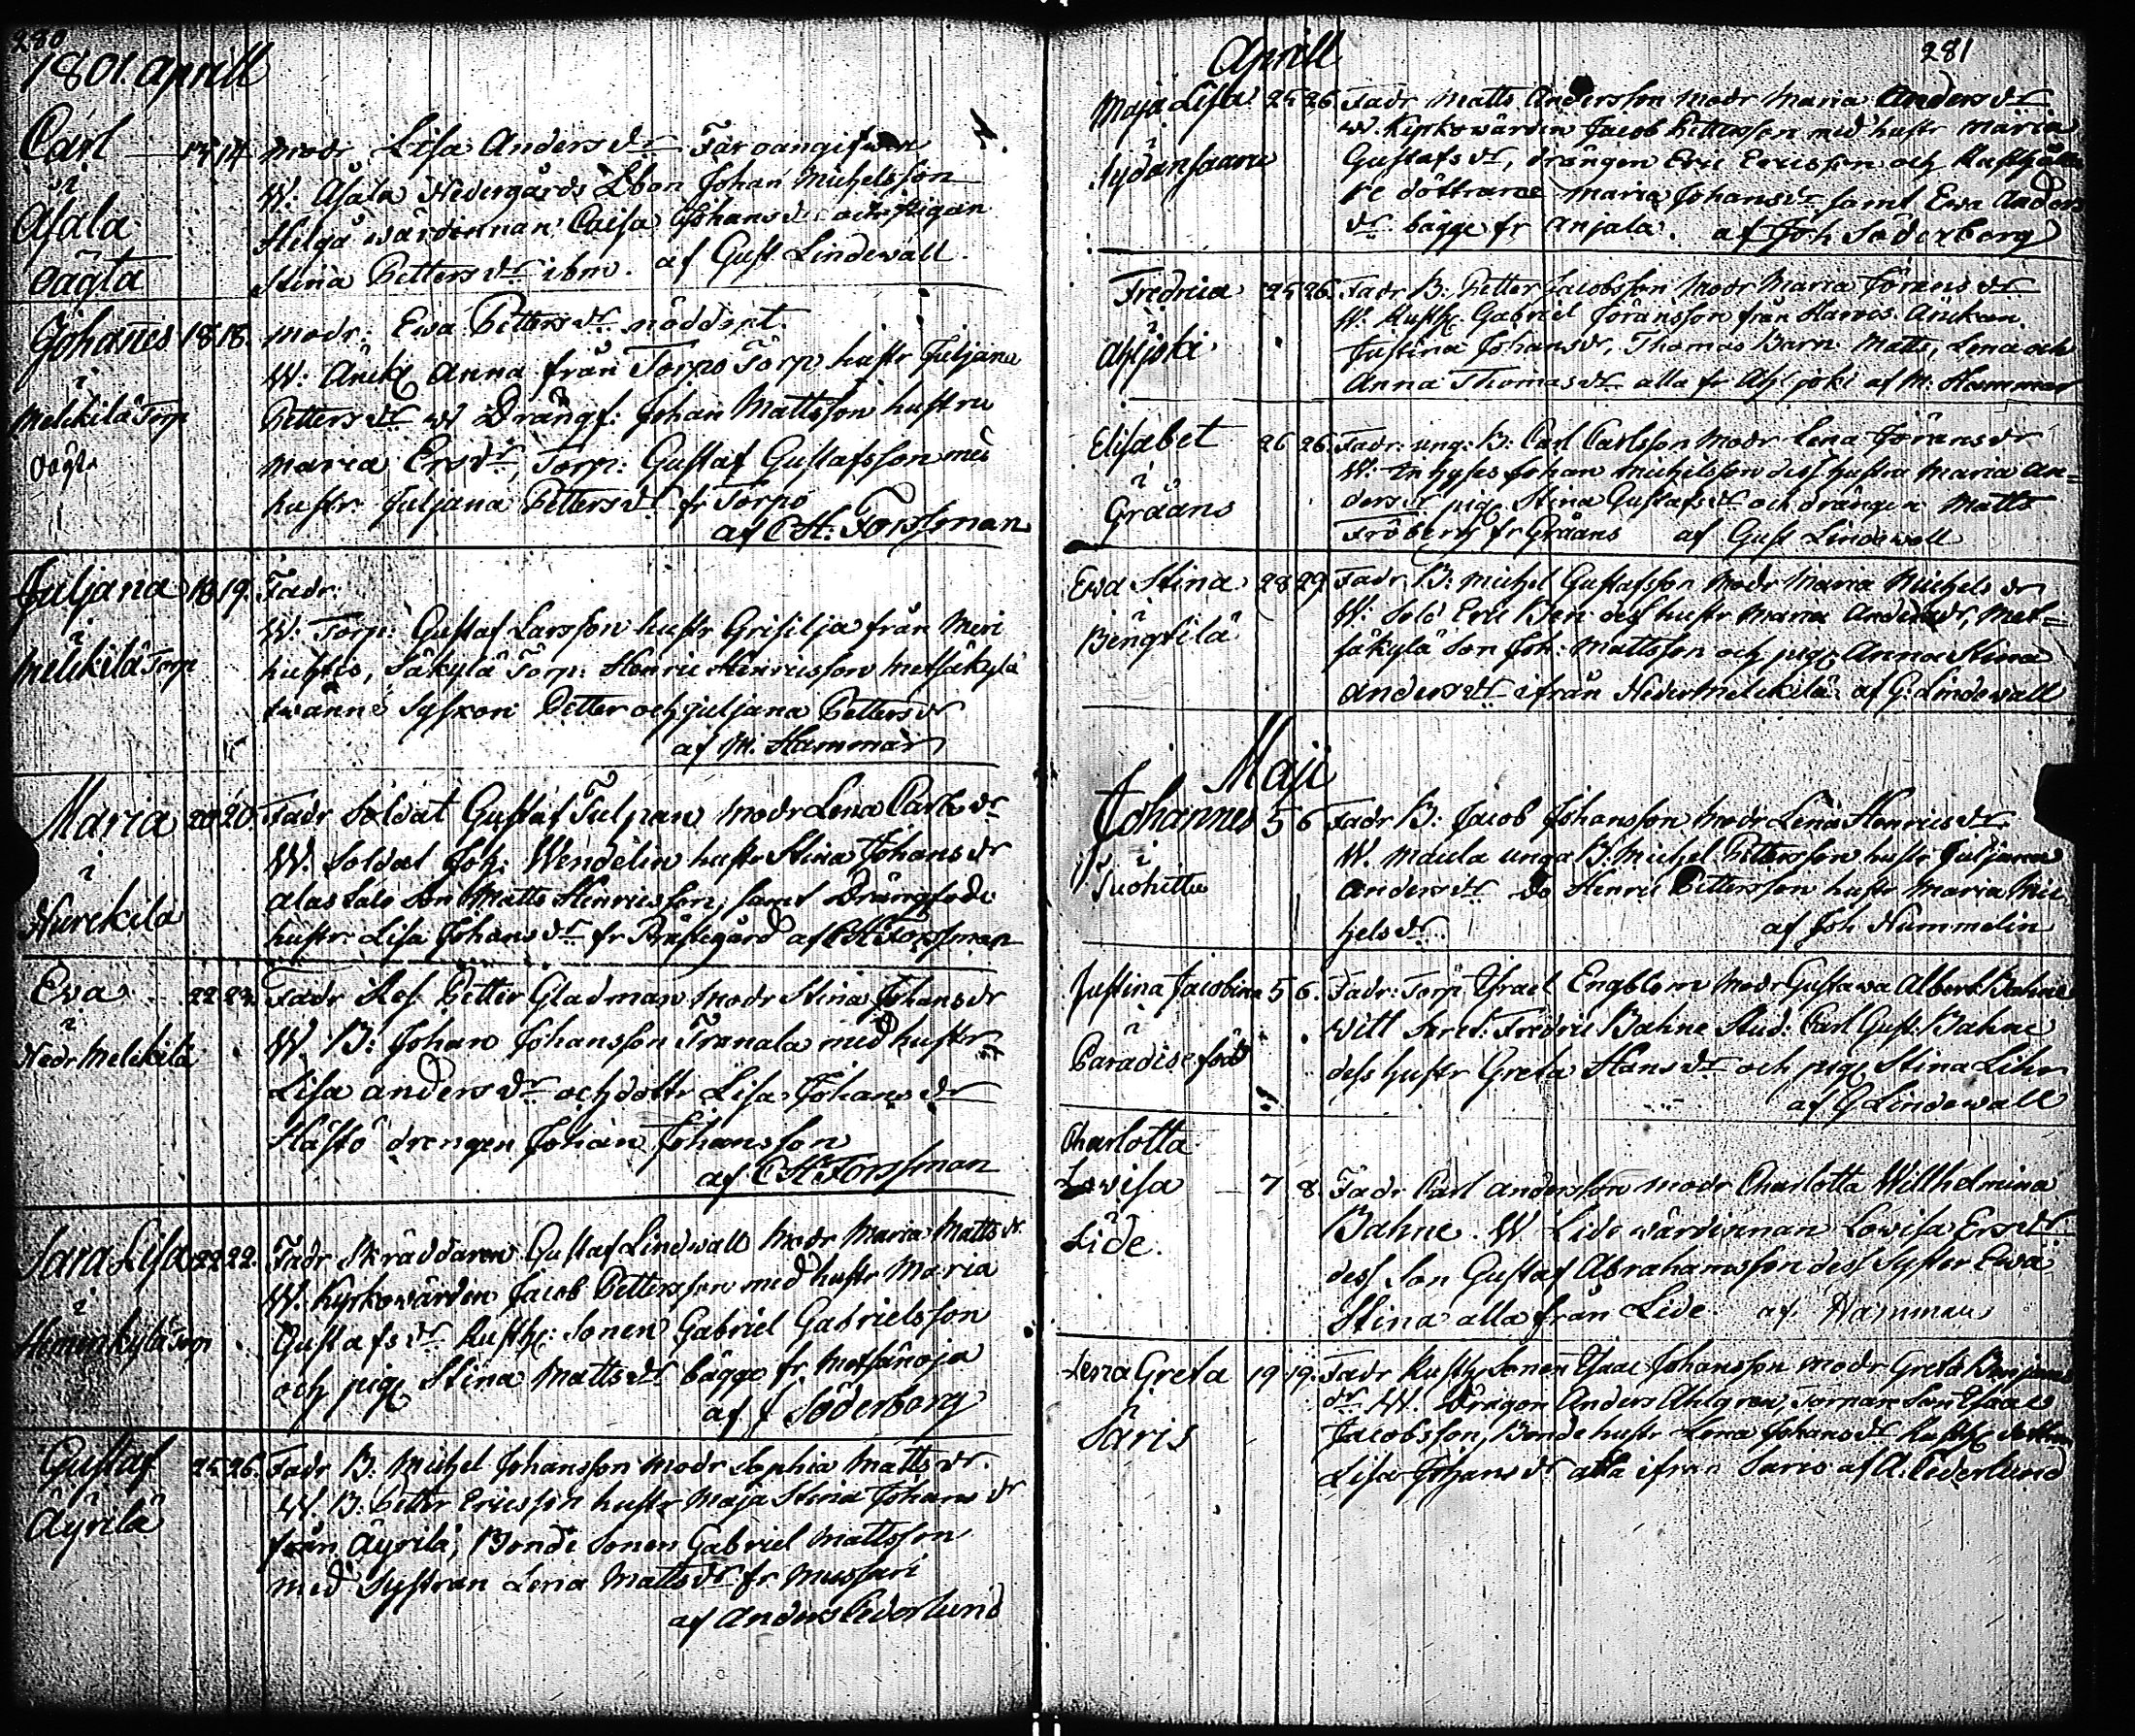 280
1801. Aprill
Carl 13 14 Modr Lisa Anders dr Far oangifwen
i W: Asala Nedergårds Lbon Johan Michelsson
Asala Helgå wärdinnan Caisa Johans dr och Pigan
oägta Stina Petters dr ibm. af Gust Lindewall
Johanes 18 18. Modr: Ewa Petters dr nöddopt.
i W: Änk Anna från Torpo Torp, hustr Juljana
Melekilä Torp Petters dr W Drängf: Johan Mattsson hustru
oägt. Maria Ers dr, Torp: Gustaf Gustafsson med
hustr: Juljana Petters dr fr Torpo
af C H: Forssman
Juljana 18 19. Fadr:
i W: Torp: Gustaf Larsson hustr Grisilja från Meri
Melekilä Torp Säkylä Torp: Henric Henricsson Metsäkylä
twänne Syskon Petter och juljana Petters dr
af M: Hammar
Maria 20 20. Fadr Soldat Gustaf Tulpan Modr Lena Carls dr
i W. Soldat Joh: Wendelin hustr Stina Johans dr
Hurekila alas Salo Son Matts Henricsson, samt
hustr Lisa Johans dr fr Prästegård af C H Forssman
Eva 22 23. Fadr Petter Gladman Modr Stina Johans dr
i W B: Johan Johansson Tranala med hustr
Nedr Melekilä Lisa anders dr och dottr Lisa Johans dr
Hästö drengen Johan Johansson
af C H Forssman
Sara Lisa 22 22. Fadr Skräddaren Gustaf Lindwall Modr Maria Matts dr
i W. Kyrkowärden Jacob Pettersson med hustr Maria
Torp Gustafs dr Rusth: Sonen Gabriel Gabrielsson
och pig Stina Matts dr bägge fr Metsänoja
af J Söderborg
Gustaf 25 26. Fadr B. Michel Johansson Modr Sophia Matts dr.
i W. B. Petter Ericsson hustr Maja Stina Johans dr
Äyrilä från Äyrilä, Bonde Sonen Gabriel Mattsson
med Systran Lena Matts dr fr Mussari
af Anders Cederlund
Aprill 281
Maja Lisa 25 26. Fadr Matts Andersson Modr Maria Anders dr
i W. Kyrkowärden Jacob Pettersson med hustr Maria
Sydänsaaru Gustafs dr, drängen Eric Ericsson och Rusthålla
re döttrarne Maria Johans dr samt Ewa Anders
dr bägge fr Anjala. af Joh Söderborg
Fredrica 25 26 Fadr B: Petter Jacobsson Modr Maria Jörans dr
i W. Rusth: Gabriel Jöransson från Harvos Änkan
Justina Johans dr, Thomas Barn Matts, Lena och
Anna Thomas dr alla fr af M: Hammar
Elisabet 26 26 Fadr: ung: B: Carl Carlsson Modr Lena Jörans dr
i W: Inhyses Johan Michelsson dess hustru Maria an=
Gråäns ders dr pig Stina Gustafs dr och drängen Matts
Fröberg fr Gråäns af Gust Lindewall
Ewa Stina 28 29 Fadr B: Michel Gustafsson Modr Maria Michels dr
i W: Sold Eric Ben dess hustr Maria Anders dr, Met=
Bengtilä säkylä Son Joh: Mattsson och pig Anna Stina
anders dr ifrån Neder Melekilä af G: Lindewall
Maji
Johannes 5 6 Fadr B: Jacob Johansson Modr Lena Henrics dr
i W. Maula unga B: Michel Pettersson hustr Juljana
Anders dr Do Henric Pettersson hustr Maria Mic
hels dr af Joh Nummelin
Justina Jacobina 5 6. Fadr: Torp Israel Engblom Modr Gustawa Albert. Bahne
i Witt Fredric Bahne Stud: Carl Gust: Bahne
dess hustr Greta Hans dr och pig Stina
af G Lindewall
Charlotta
Lowisa 7 8 Fadr Carl andersson Modr Charlotta Willhelmina
i Bahne. W Lide wärdinnan Lowisa Ers dr
Lide. dess Son Gustaf Abrahamsson dess Syster Ewa
Stina alla från Lide af Hammar
Lena Greta 19 19. Fadr Rusth Sonen Isaac Johansson Modr Greta
i dr W. Dragon Anders Ahlgren, Son Isaac
Säris Jacobsson, Bonde hustr Lena Johans dr Rusth
Lisa Johans dr alla ifrån Säris af A. Cederlund